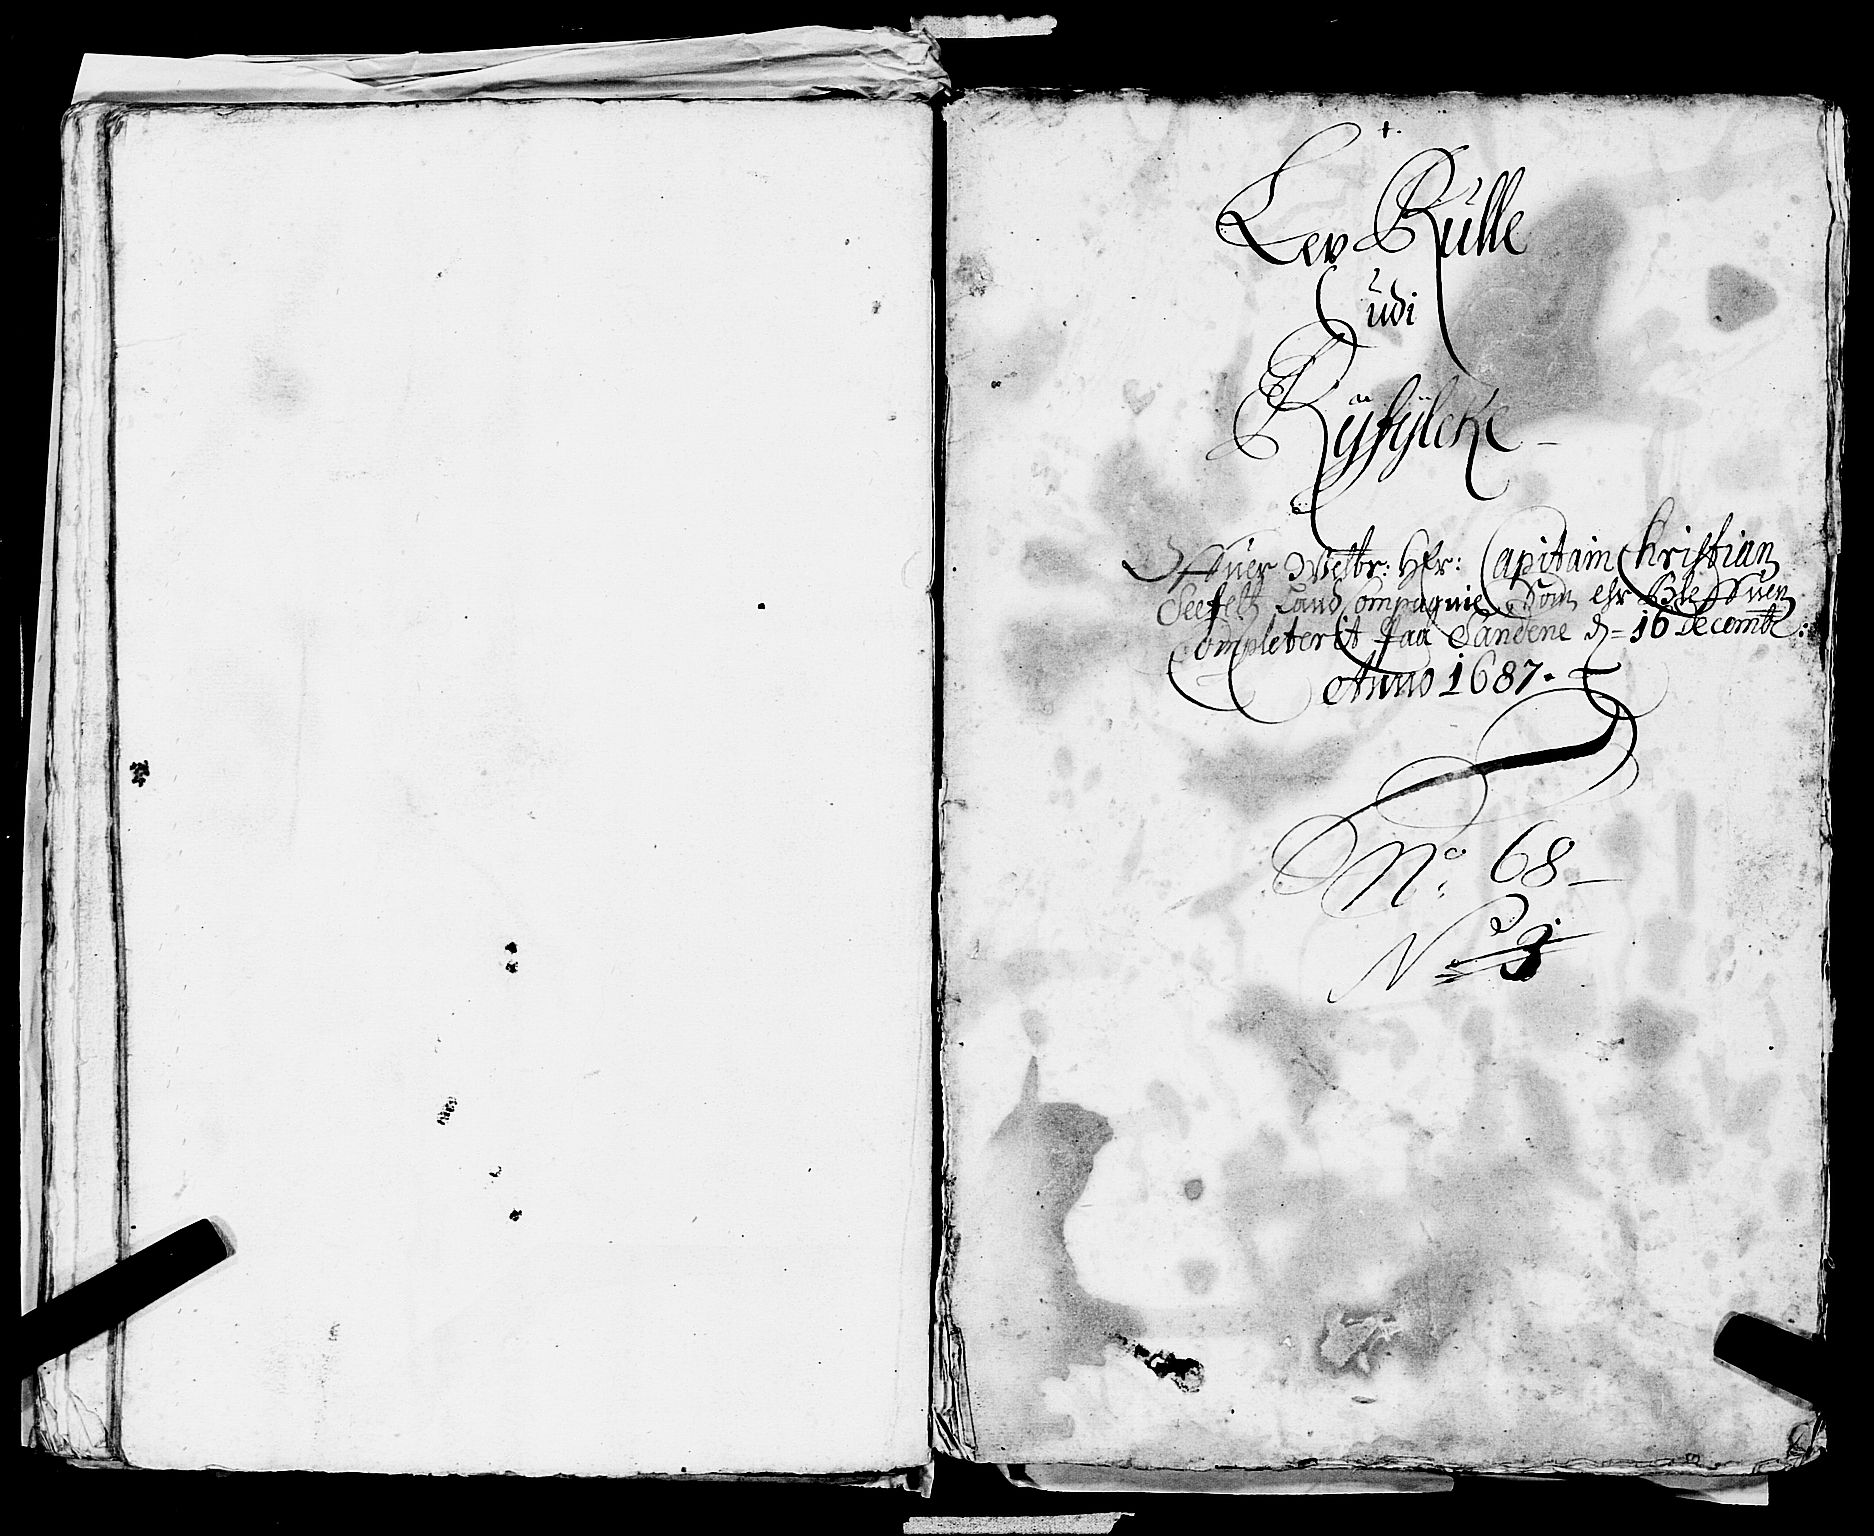 Lev Rülle
üdi
Rÿfÿlcke
Offuer Velbr: Hr: Capitain Christian
Seefelt Land Compagnie, Som ehr Bleffuen
Completerit paa Sandene d= 16 Decembr:
Anno 1687.
No: 68
No 3